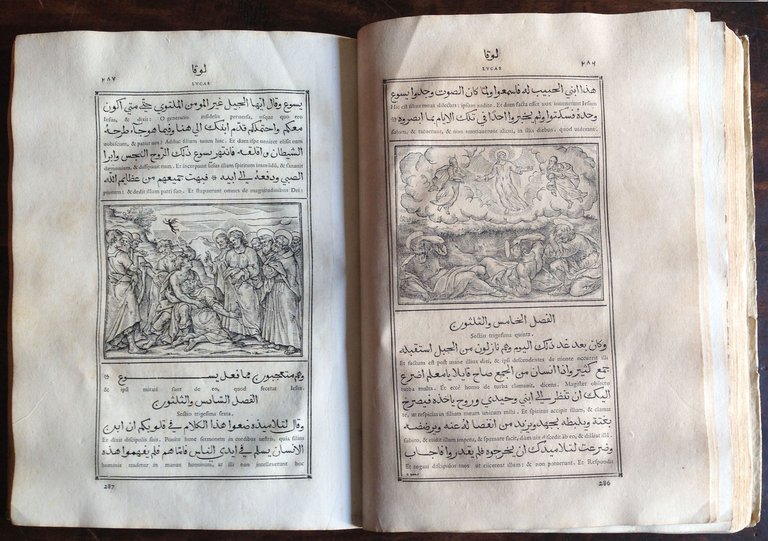 لوقا ٢٨٦
LVCAS
هذا ابني الحبيب له فاسمعوا ولما كان الصوت وجدوا يسوع
Hic est filius meus dilectus: ipsum audite. Et dum facta esset vox inuenerunt Iesum
وحده فسكتوا ولم يخبروا احدا في تلك الايام بما ابصروه
solum, & tacuerunt, & non annuntiauerunt alicui, in illis diebus, quod viderunt.
الفصل الخامس والثلثون
Sectio trigesima quinta.
وكان بعد غد ذلك اليوم وهم نازلون من الجبل استقبله
Et factum est post mane illius diei, & ipsi descendentes de monte occurrit illi
جمع كثير واذا انسان من الجمع صاح قايلا يا معلم اضرع
turba multa. Et ecce homo de turba clamauit, dicens. Magister obsecro
اليك ان تنظر الى ابني وحيدي وروح ياخذه فيصرخ
te, vt respicias in filium meum vnicum mihi. Et spiritus accipit illum, & clamat
بغتة ويلبطه بجهد ويزبد من انفصاله عنه ويرضضه
subito, & elidit illum impetu, & spumare facit, & elidit illum.
وضرعت لتلاميذك ان يخرجوه فلم يقدروا فاجاب
Et rogaui discipulos tuos vt eicerent illum: & non potuerunt. Et Respondit
286
لوقا ٢٨٧
LVCAS
يسوع وقال ايها الجيل غير المومن الملتوي حتى متى اكون
Iesus, & dixit: O generatio infidelis peruersa, usque quo ero
معكم واحتملكم قدم ابنك الى هنا وفيما هو جا طرحه
vobiscum, & patiar vos? Adduc filium tuum huc. Et dum ipse veniret elisit eum
الشيطان واقلقه فانتهر يسوع ذلك الروح النجس وابرا
dæmonium, & dissipauit eum. Et increpauit Iesus illum spiritum immundū, & sanauit
الصبي ودفعه الى ابيه فبهت جميعهم من عظايم الله
puerum: & dedit illum patri suo. Et stupuerunt omnes de magnitudinibus Dei:
وهم متعجبون مما فعل يسوع
& ipsi mirati sunt de eo, quod fecerat Iesus.
الفصل السادس والثلثون
Sectio trigesima sexta.
وقال لتلاميذه ضعوا هذا الكلام في قلوبكم ان ابن
Et dixit discipulis suis. Ponite hunc sermonem in cordibus vestris, quia filius
الانسان يسلم في ايدي الناس فاما هم فلم يفهموا هذه
hominis tradetur in manus hominum, at illi non intellexerunt hoc
287